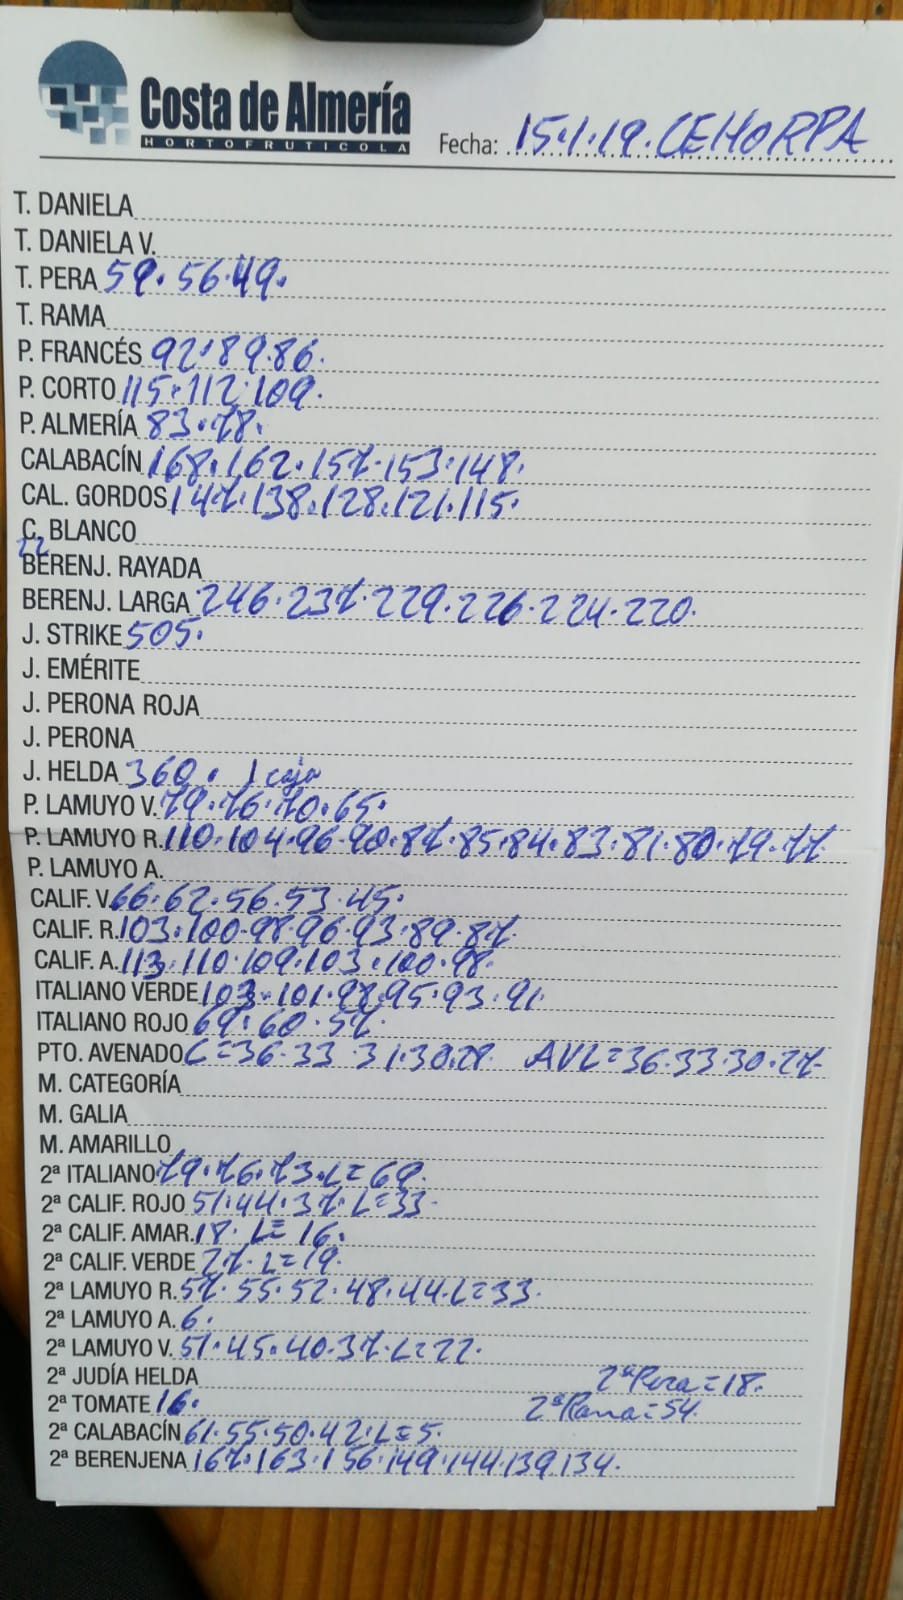 Costa de Almería
HORTOFRUTICOLA
Fecha: 15.1.19. CEHORPA
T. DANIELA
T. DANIELA V.
T. PERA 59. 56.49.
T. RAMA
P. FRANCÉS 92.89.86.
P. CORTO 115.112.109.
P. ALMERÍA 83.78.
CALABACÍN 168.162.157.153.148.
CAL. GORDOS 147.138.128.121.115.
C. BLANCO
22
BERENJ. RAYADA
BERENJ. LARGA 246.237.229.226.224.220.
J. STRIKE 505.
J. EMÉRITE
J. PERONA ROJA
J. PERONA
J. HELDA 360. 1 caja
P. LAMUYO V. 79.76.70.65.
P. LAMUYO R. 110.104.96.90.87.85.84.83.81.80.79.77
P. LAMUYO A.
CALIF. V. 66.62.56.53.45.
CALIF. R. 103.100.98.96.93.89.87
CALIF. A. 113.110.109.103.100.98.
ITALIANO VERDE 103.101.98.95.93.91.
ITALIANO ROJO 69.60.57.
PTO. AVENADO C=36.33 31.30.28 AVL=36.33.30.27.
M. CATEGORÍA
M. GALIA
M. AMARILLO
2ª ITALIANO 79.76.73.L=69.
2ª CALIF. ROJO 51.44.37.L=33.
2ª CALIF. AMAR. 18. L=16.
2ª CALIF. VERDE 27. L=19.
2ª LAMUYO R. 57.55.52.48.44.L=33.
2ª LAMUYO A. 6.
2ª LAMUYO V. 51.45.40.37.L=22.
2ª JUDÍA HELDA 2ª Pera=18.
2ª TOMATE 16. 2ª Rama=54.
2ª CALABACÍN 61.55.50.42.L=5.
2ª BERENJENA 167.163.156.149.144.139.134.